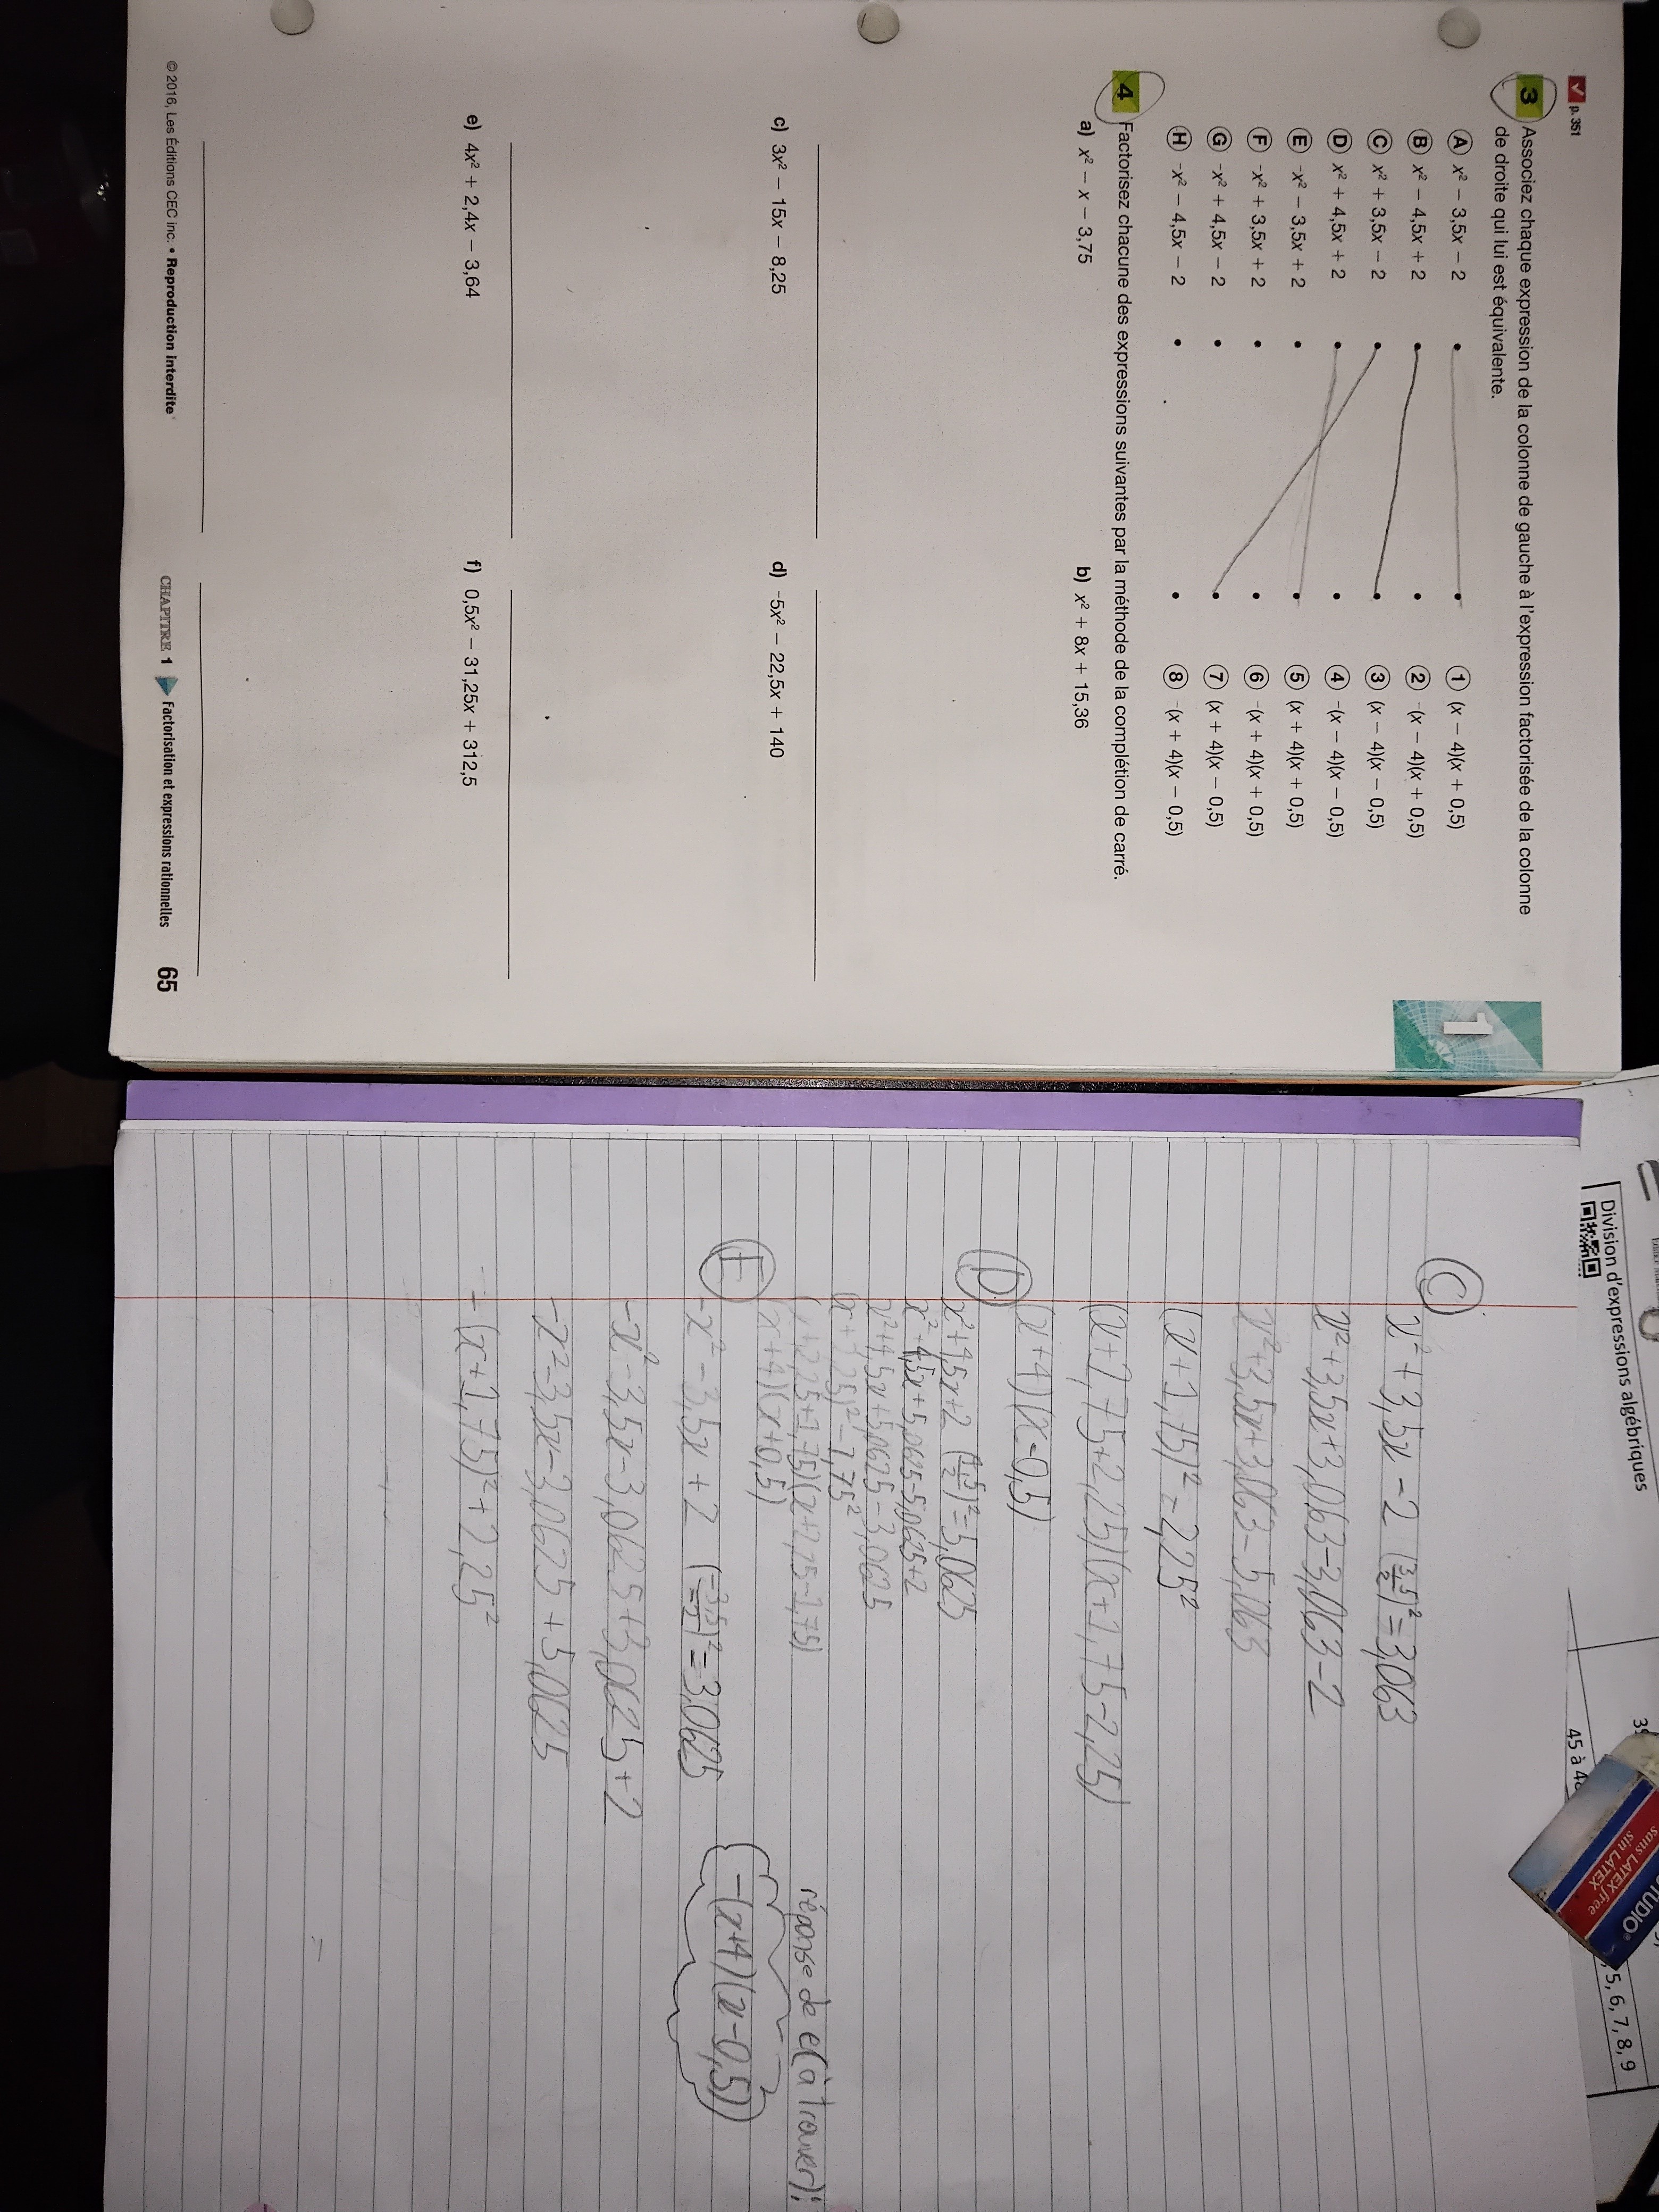 p. 351
3 Associez chaque expression de la colonne de gauche à l'expression factorisée de la colonne
de droite qui lui est équivalente.
A x² − 3,5x − 2 • • 1 (x − 4)(x + 0,5)
B x² − 4,5x + 2 • • 2 -(x − 4)(x + 0,5)
C x² + 3,5x − 2 • • 3 (x − 4)(x − 0,5)
D x² + 4,5x + 2 • • 4 -(x − 4)(x − 0,5)
E -x² − 3,5x + 2 • • 5 (x + 4)(x + 0,5)
F -x² + 3,5x + 2 • • 6 -(x + 4)(x + 0,5)
G -x² + 4,5x − 2 • • 7 (x + 4)(x − 0,5)
H -x² − 4,5x − 2 • • 8 -(x + 4)(x − 0,5)
4 Factorisez chacune des expressions suivantes par la méthode de la complétion de carré.
a) x² − x − 3,75 b) x² + 8x + 15,36
c) 3x² − 15x − 8,25 d) -5x² − 22,5x + 140
e) 4x² + 2,4x − 3,64 f) 0,5x² − 31,25x + 312,5
© 2016, Les Éditions CEC inc. • Reproduction interdite
CHAPITRE 1 Factorisation et expressions rationnelles 65
1
Division d'expressions algébriques
45 à
5, 6, 7, 8, 9
STUDIO®
sans LATEX free
sin LÁTEX
C x² + 3,5x − 2 (3,5/2)² = 3,063
x² + 3,5x + 3,063 − 3,063 − 2
x² + 3,5x + 3,063 − 5,063
(x + 1,75)² − 2,25²
(x + 1,75 + 2,25)(x + 1,75 − 2,25)
(x + 4)(x − 0,5)
D x² + 4,5x + 2 (4,5/2)² = 5,0625
x² + 4,5x + 5,0625 − 5,0625 + 2
x² + 4,5x + 5,0625 − 3,0625
(x + 2,25)² − 1,75²
(x + 2,25 + 1,75)(x + 2,25 − 1,75)
(x + 4)(x + 0,5)
réponse de e (à trouver):
E −x² − 3,5x + 2 (−3,5/−2)² = 3,0625 −(x+4)(x−0,5)
−x² − 3,5x − 3,0625 + 3,0625 + 2
−x² − 3,5x − 3,0625 + 5,0625
− (x + 1,75)² + 2,25²